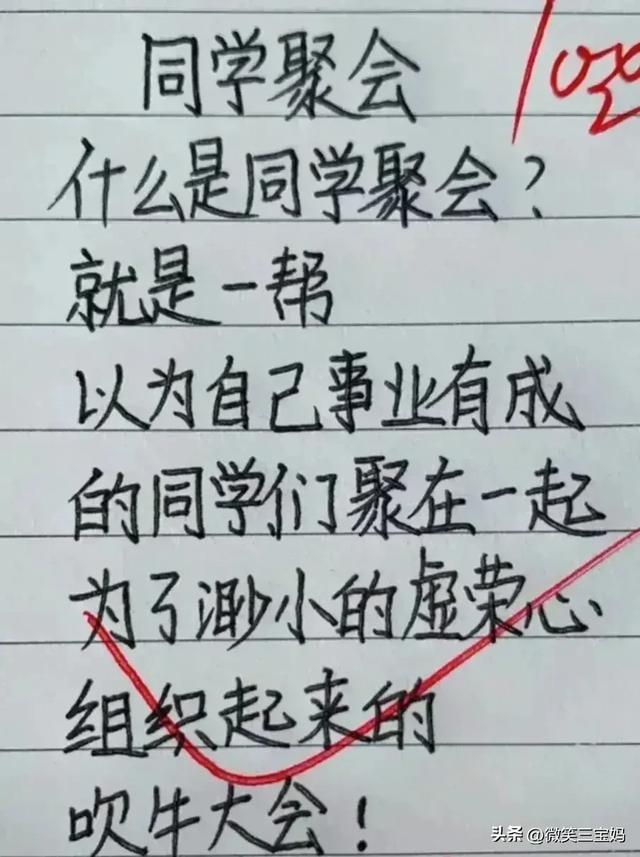 同学聚会
什么是同学聚会?
就是一帮
以为自己事业有成
的同学们聚在一起
为了渺小的虚荣心
组织起来的
吹牛大会!
头条 @微笑三宝妈